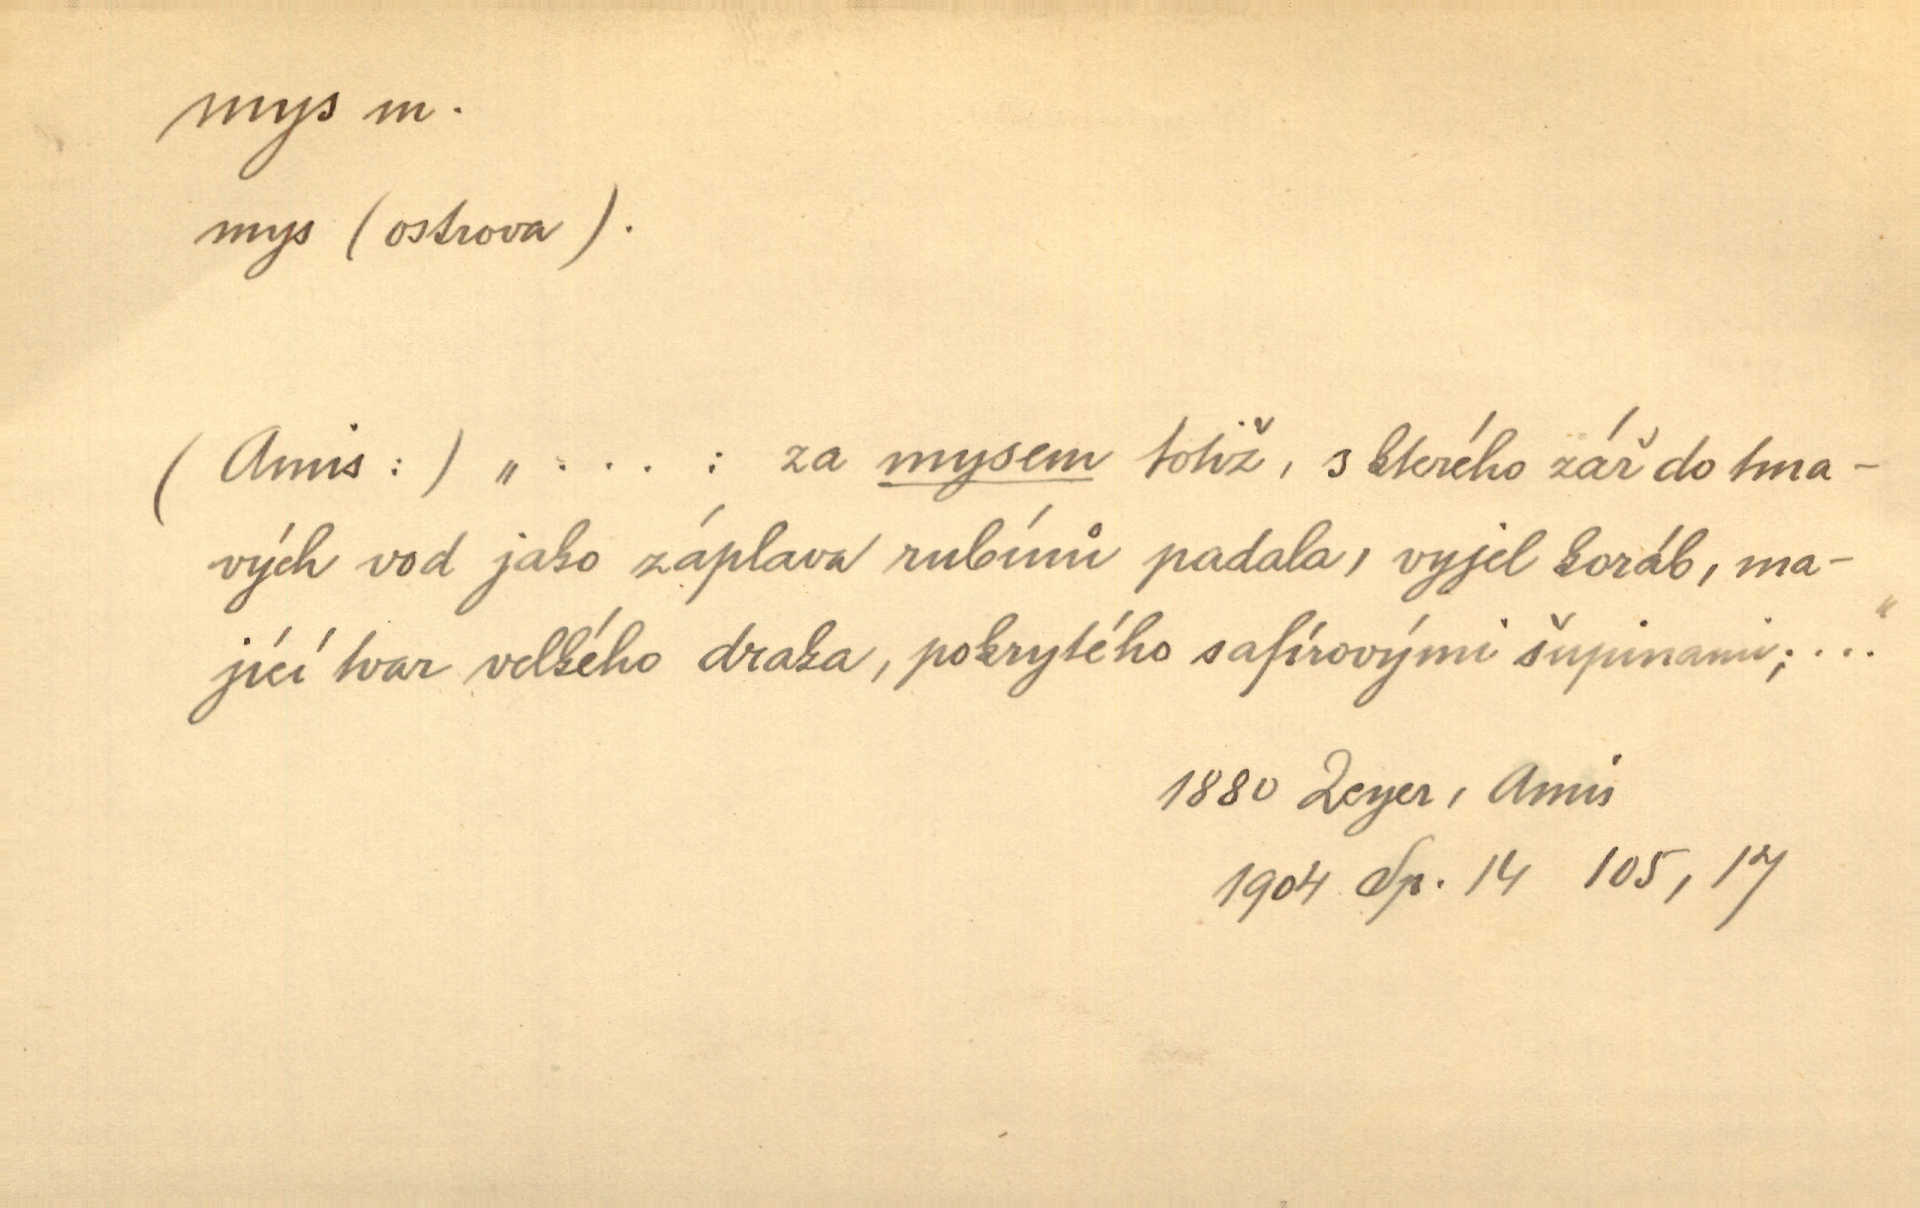 mys m.
mys (ostrova).
(Amis:) „ . . . : za mysem totiž, s kterého zář do tma-
vých vod jako záplava rubínů padala, vyjel koráb, ma-
jící tvar velkého draka, pokrytého safírovými šupinami; . . . "
1880 Zeyer, Amis
1904 Sp. 14 105, 17